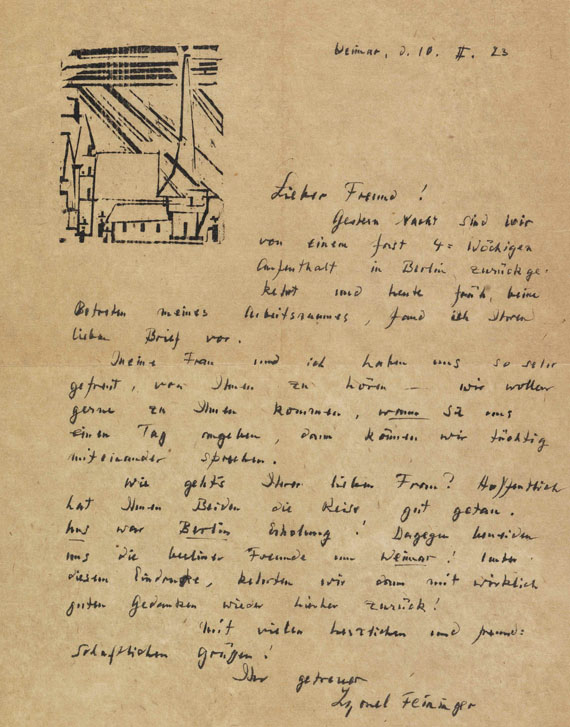 Weimar, d. 10. II. 23
Lieber Freund!
Gestern Nacht sind wir
von einem fast 4= wöchigen
Aufenthalt in Berlin zurückge-
kehrt und heute früh, beim
Betreten meines Arbeitsraumes, fand ich Ihren
lieben Brief vor.
Meine Frau und ich haben uns so sehr
gefreut, von Ihnen zu hören — wir wollen
gerne zu Ihnen kommen, wenn Sie uns
einen Tag angeben, dann können wir tüchtig
miteinander sprechen.
Wie geht's Ihrer lieben Frau? Hoffentlich
hat Ihnen Beiden die Reise gut getan.
Uns war Berlin Erholung! Dagegen beneiden
uns die berliner Freunde um Weimar! Unter
diesem Eindrucke, kehrten wir dann mit wirklich
guten Gedanken wieder hierher zurück!
Mit vielen herzlichen und freund=
schaftlichen Grüßen!
Ihr getreuer
Lyonel Feininger